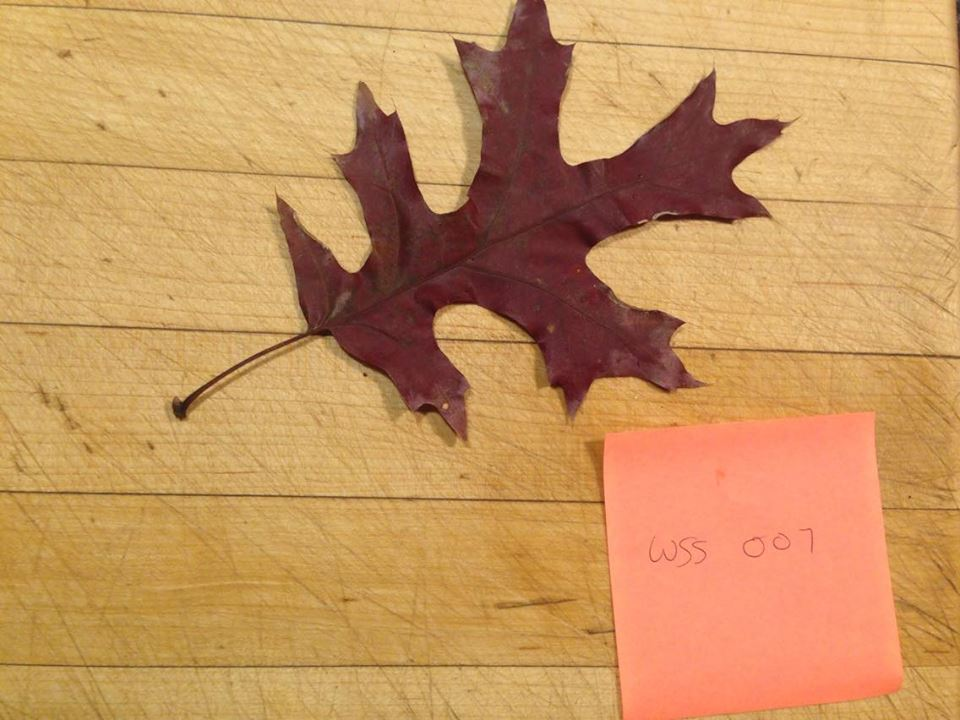 WSS 007